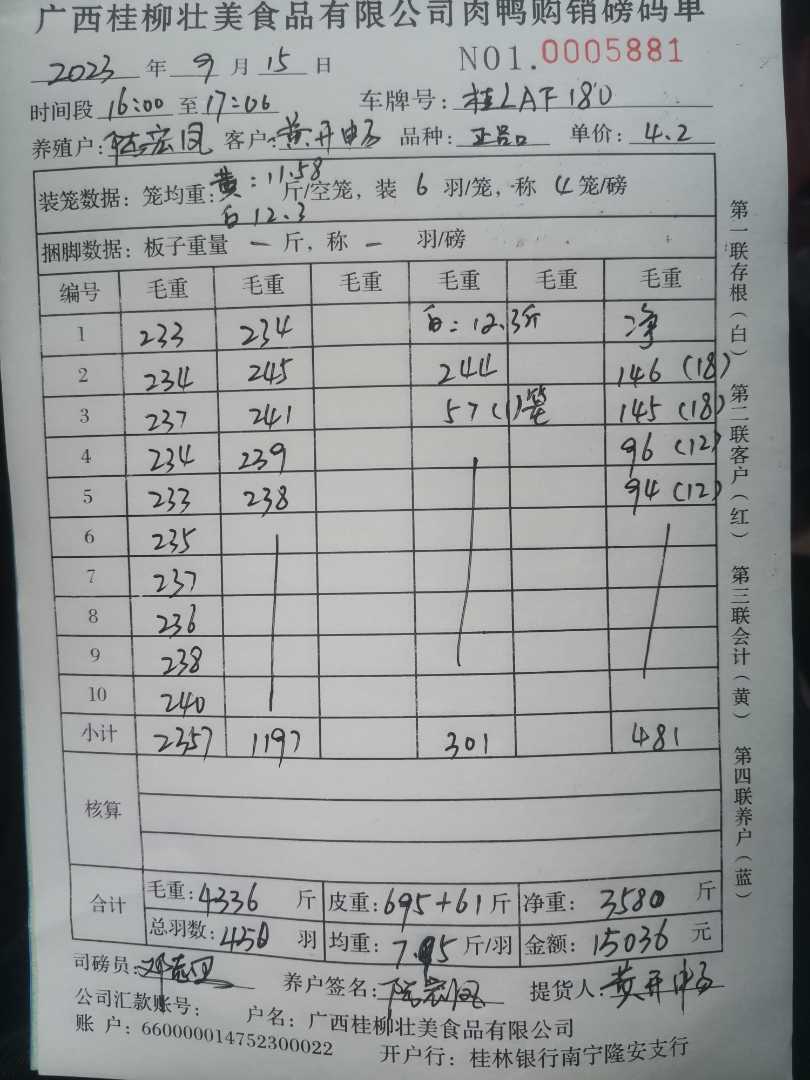 广西桂柳壮美食品有限公司肉鸭购销磅码单
2023 年 9 月 15 日 NO1.0005881
时间段 16:00 至 17:06 车牌号: 桂LAF180
养殖户: 陆宏凤 客户: 黄开申 品种: 正品 单价: 4.2
装笼数据: 笼均重: 黄:11.58 斤/空笼, 装 6 羽/笼, 称 4 笼/磅
白 12.3
捆脚数据: 板子重量 一 斤, 称 一 羽/磅
编号 毛重 毛重 毛重 毛重 毛重 毛重
1 233 234 白:12.3斤 净
2 234 245 244 146 (18)
3 237 241 57 (1)笼 145 (18)
4 234 239 96 (12)
5 233 238 94 (12)
6 235
7 237
8 236
9 238
10 240
小计 2357 1197 301 481
核算
合计 毛重: 4336 斤 皮重: 695+61 斤 净重: 3580 斤
总羽数: 450 羽 均重: 7.95 斤/羽 金额: 15036 元
司磅员: 养户签名: 陆宏凤 提货人: 黄开申
公司汇款账号: 户名: 广西桂柳壮美食品有限公司
账 户: 660000014752300022 开户行: 桂林银行南宁隆安支行
第一联存根(白) 第二联客户(红) 第三联会计(黄) 第四联养户(蓝)